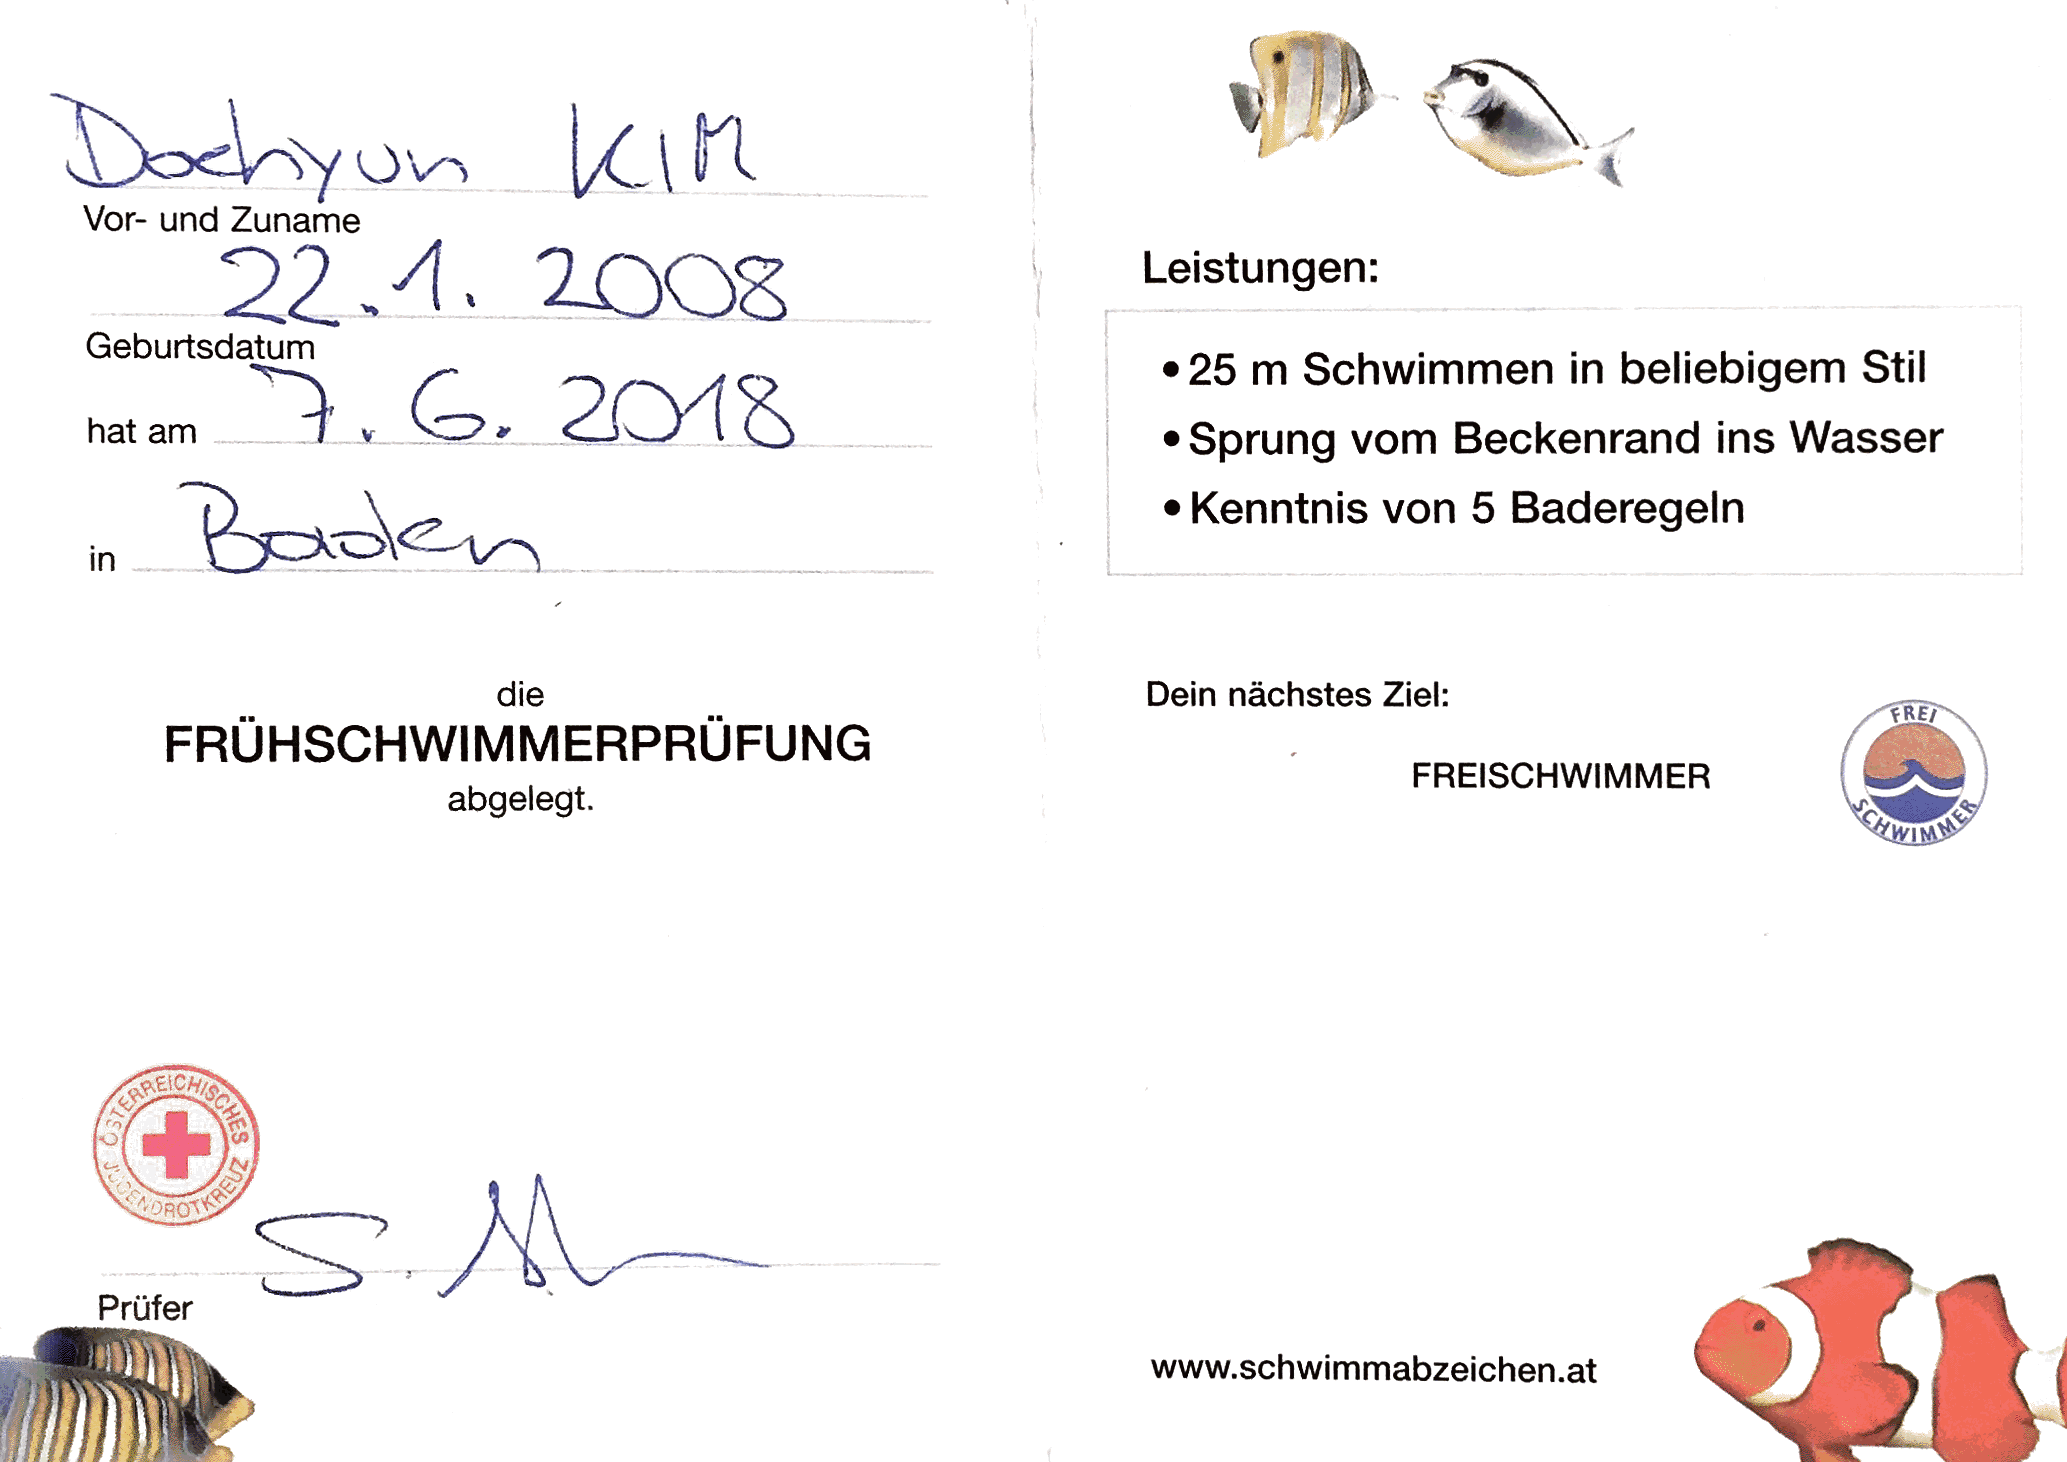 Dochyun KIM
Vor- und Zuname
22.1. 2008
Geburtsdatum
hat am 7.6.2018
in Baden
die
FRÜHSCHWIMMERPRÜFUNG
abgelegt.
ÖSTERREICHISCHES
JUGENDROTKREUZ
Prüfer
Leistungen:
• 25 m Schwimmen in beliebigem Stil
• Sprung vom Beckenrand ins Wasser
• Kenntnis von 5 Baderegeln
Dein nächstes Ziel:
FREISCHWIMMER
FREI
SCHWIMMER
www.schwimmabzeichen.at